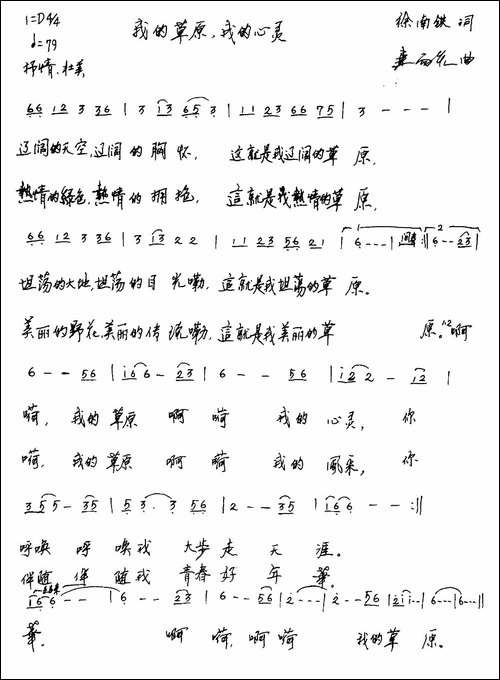 1=D4/4 我的草原,我的心灵 徐南铁 词
♩=79 曲
抒情、壮美
66 12 3 36 | 3 13 65 3 | 11 23 66 75 | 3 - - - |
辽阔的天空,辽阔的胸怀, 这就是我辽阔的草原,
熱情的绿色,熱情的拥抱, 這就是我熱情的草原,
66 12 3 36 | 3 13 2 2 | 11 23 56 21 | 6 - - - | 间奏 :|| 6 - - 23 |
坦荡的大地,坦荡的目光嘞,這就是我坦荡的草原。
美丽的野花,美丽的传流嘞,這就是我美丽的草 原。1.2.啊
6 - - 56 | 16 6 - 23 | 6 - - 56 | 12 2 - 12 |
嗬, 我的草原 啊 嗬 我的 心灵, 你
嗬, 我的草原 啊 嗬 我的 風采, 你
3 5 5 - 35 | 5 3 · 3 56 | 2 - - 35 | 1 6 6 - - :||
呼唤 呼唤我 大步走天涯。
伴随 伴随我 青春好年華。
1 6 6 - - | 6 - - 23 | 6 - - 56 | 2 - - - | 2 - - 56 | 2 1 1 - - | 6 - - - | 6 - - - ||
華。 啊 嗬,啊 嗬 我的草 原。